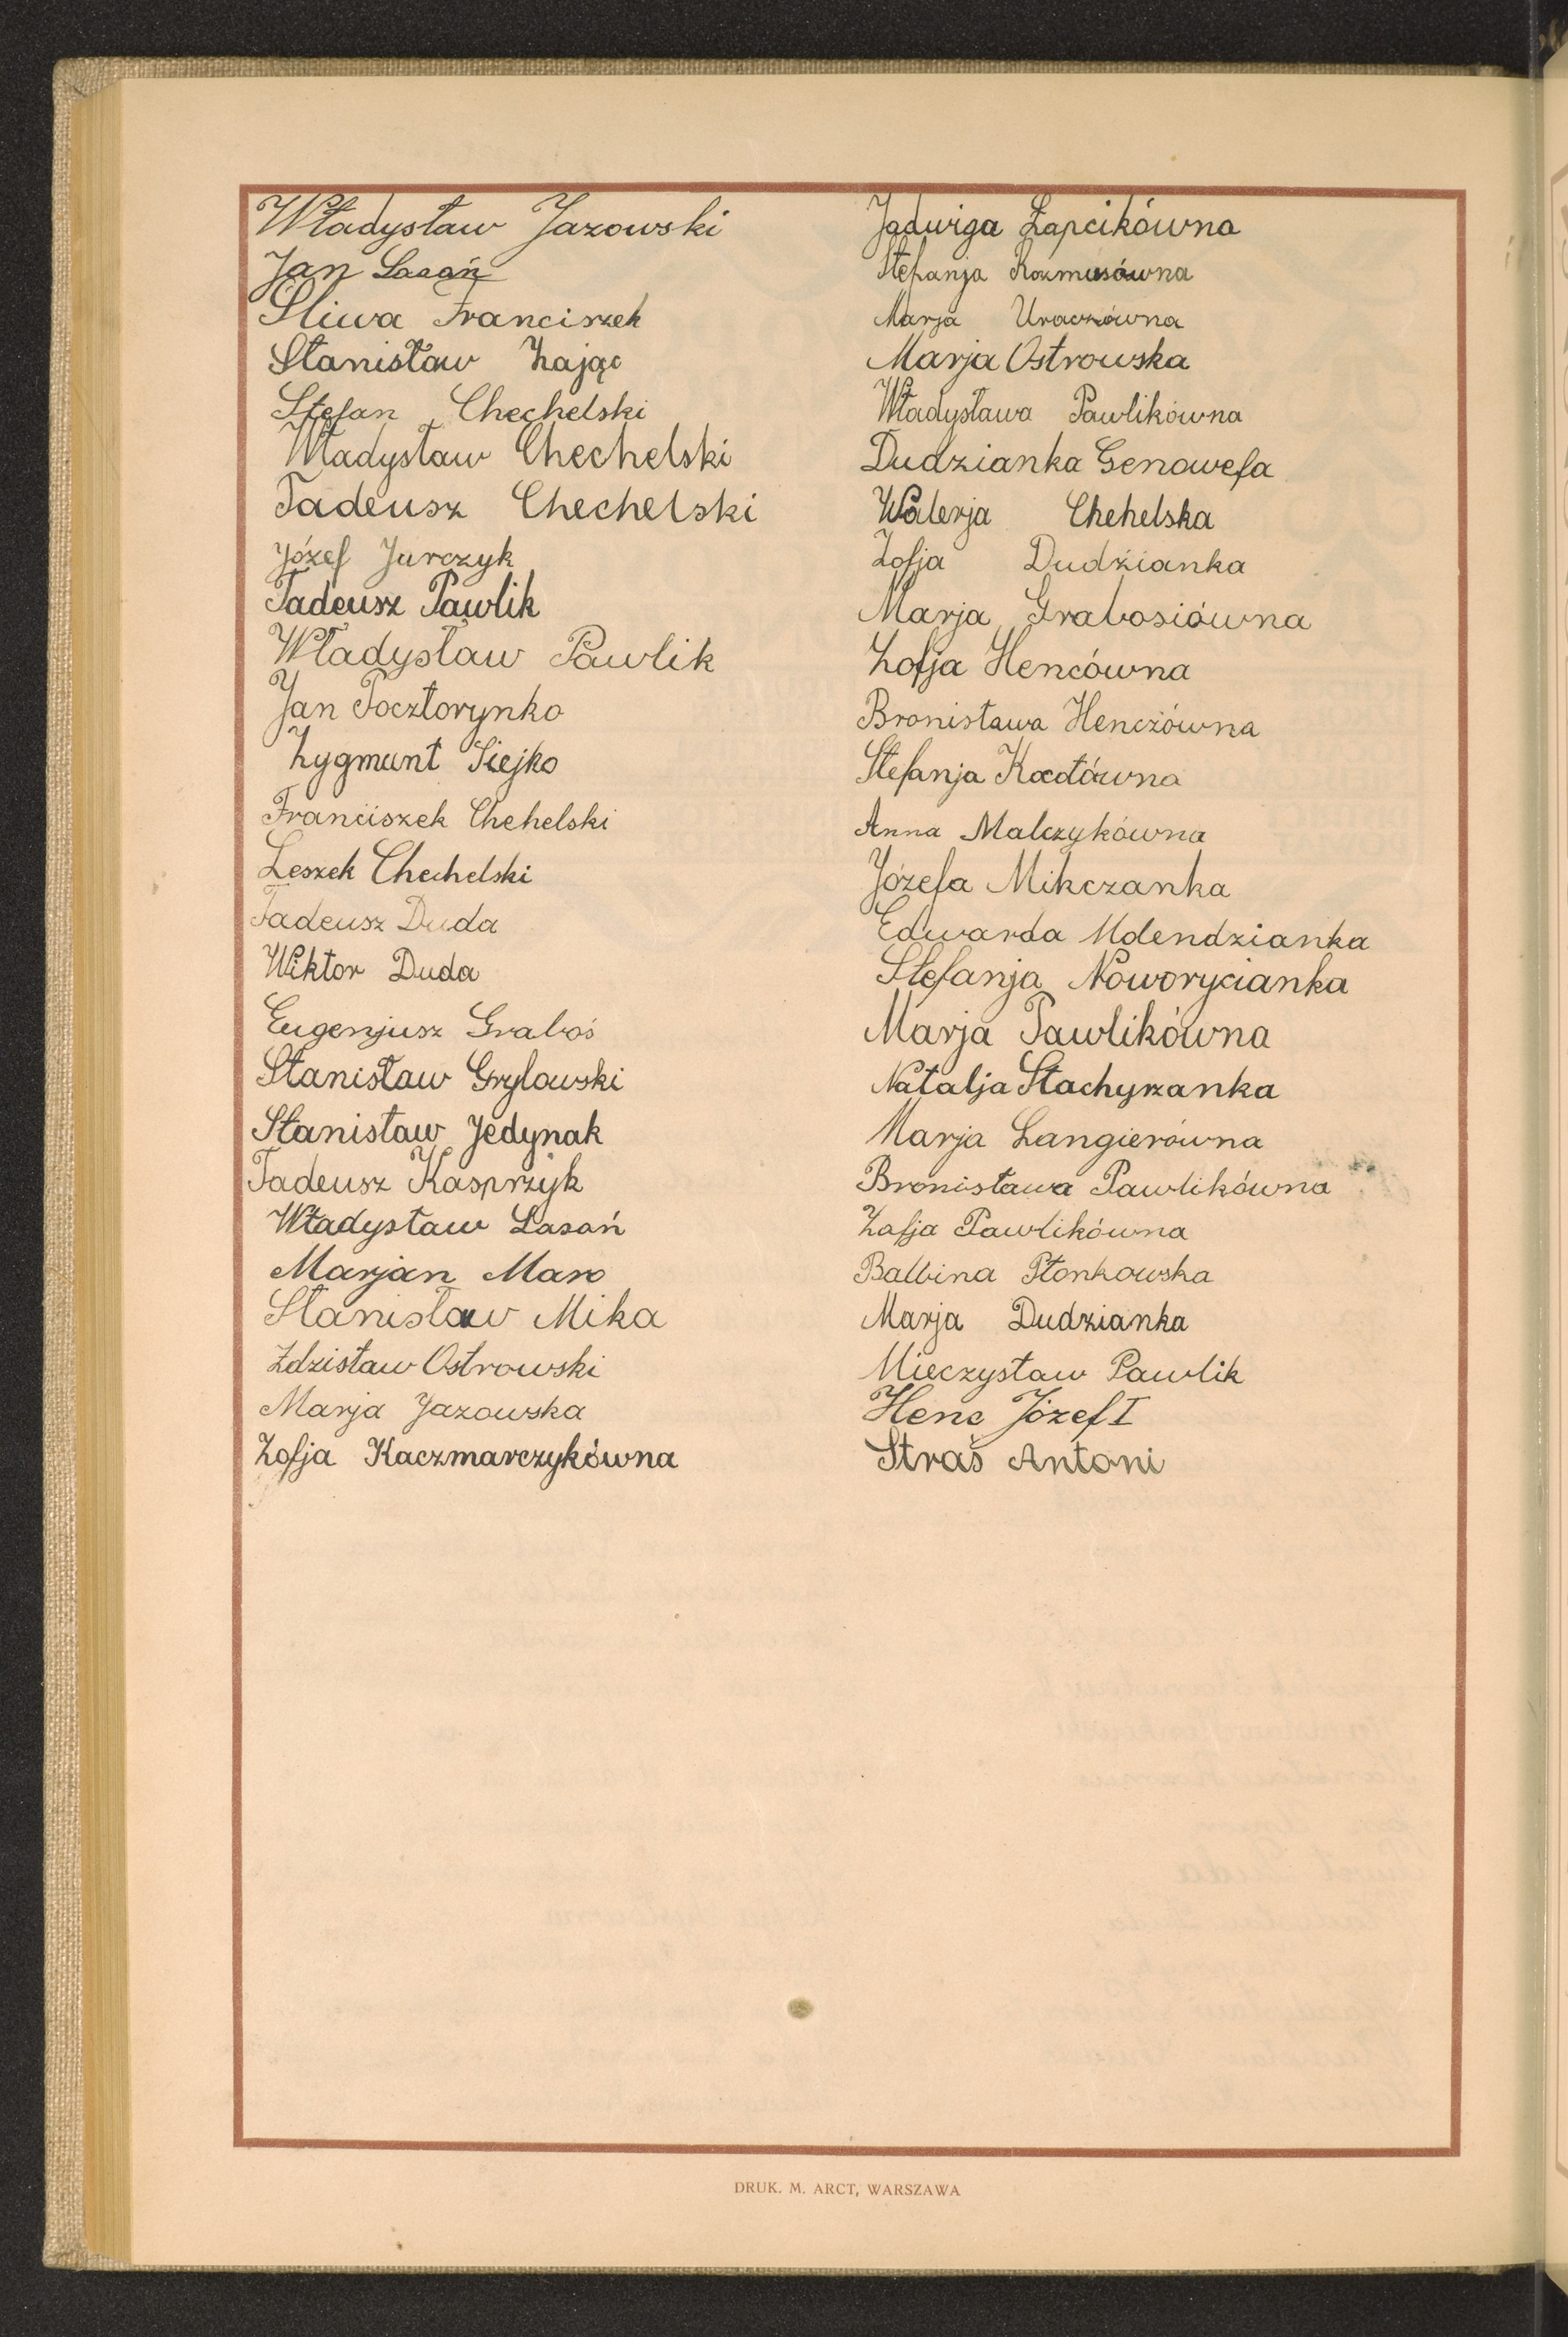 Władysław Jazowski
Jan Lasań
Śliwa Franciszek
Stanisław Zając
Stefan Chechelski
Władysław Chechelski
Tadeusz Chechelski
Józef Jurczyk
Tadeusz Pawlik
Władysław Pawlik
Jan Pocztorynko
Zygmunt Siejko
Franciszek Chehelski
Leszek Chechelski
Tadeusz Duda
Wiktor Duda
Eugenjusz Graboś
Stanisław Grylowski
Stanisław Jedynak
Tadeusz Kasprzyk
Władysław Lasoń
Marjan Maro
Stanisław Mika
Zdzisław Ostrowski
Marja Jazowska
Zofja Kaczmarczykówna
Jadwiga Łapcikówna
Stefanja Kozmusówna
Marja Uraczówna
Marja Ostrowska
Władysława Pawlikówna
Dudzianka Genowefa
Walerja Chehelska
Zofja Dudzianka
Marja Grabosiówna
Zofja Hencówna
Bronisława Henczówna
Stefanja
Anna Malczykówna
Józefa Mikczanka
Edwarda Molendzianka
Stefanja Noworycianka
Marja Pawlikówna
Natalja Stachyrzanka
Marja Langierówna
Bronisława Pawlikówna
Zofja Pawlikówna
Balbina Płonkowska
Marja Dudzianka
Mieczysław Pawlik
Henc Józef I
Straś Antoni
DRUK. M. ARCT, WARSZAWA